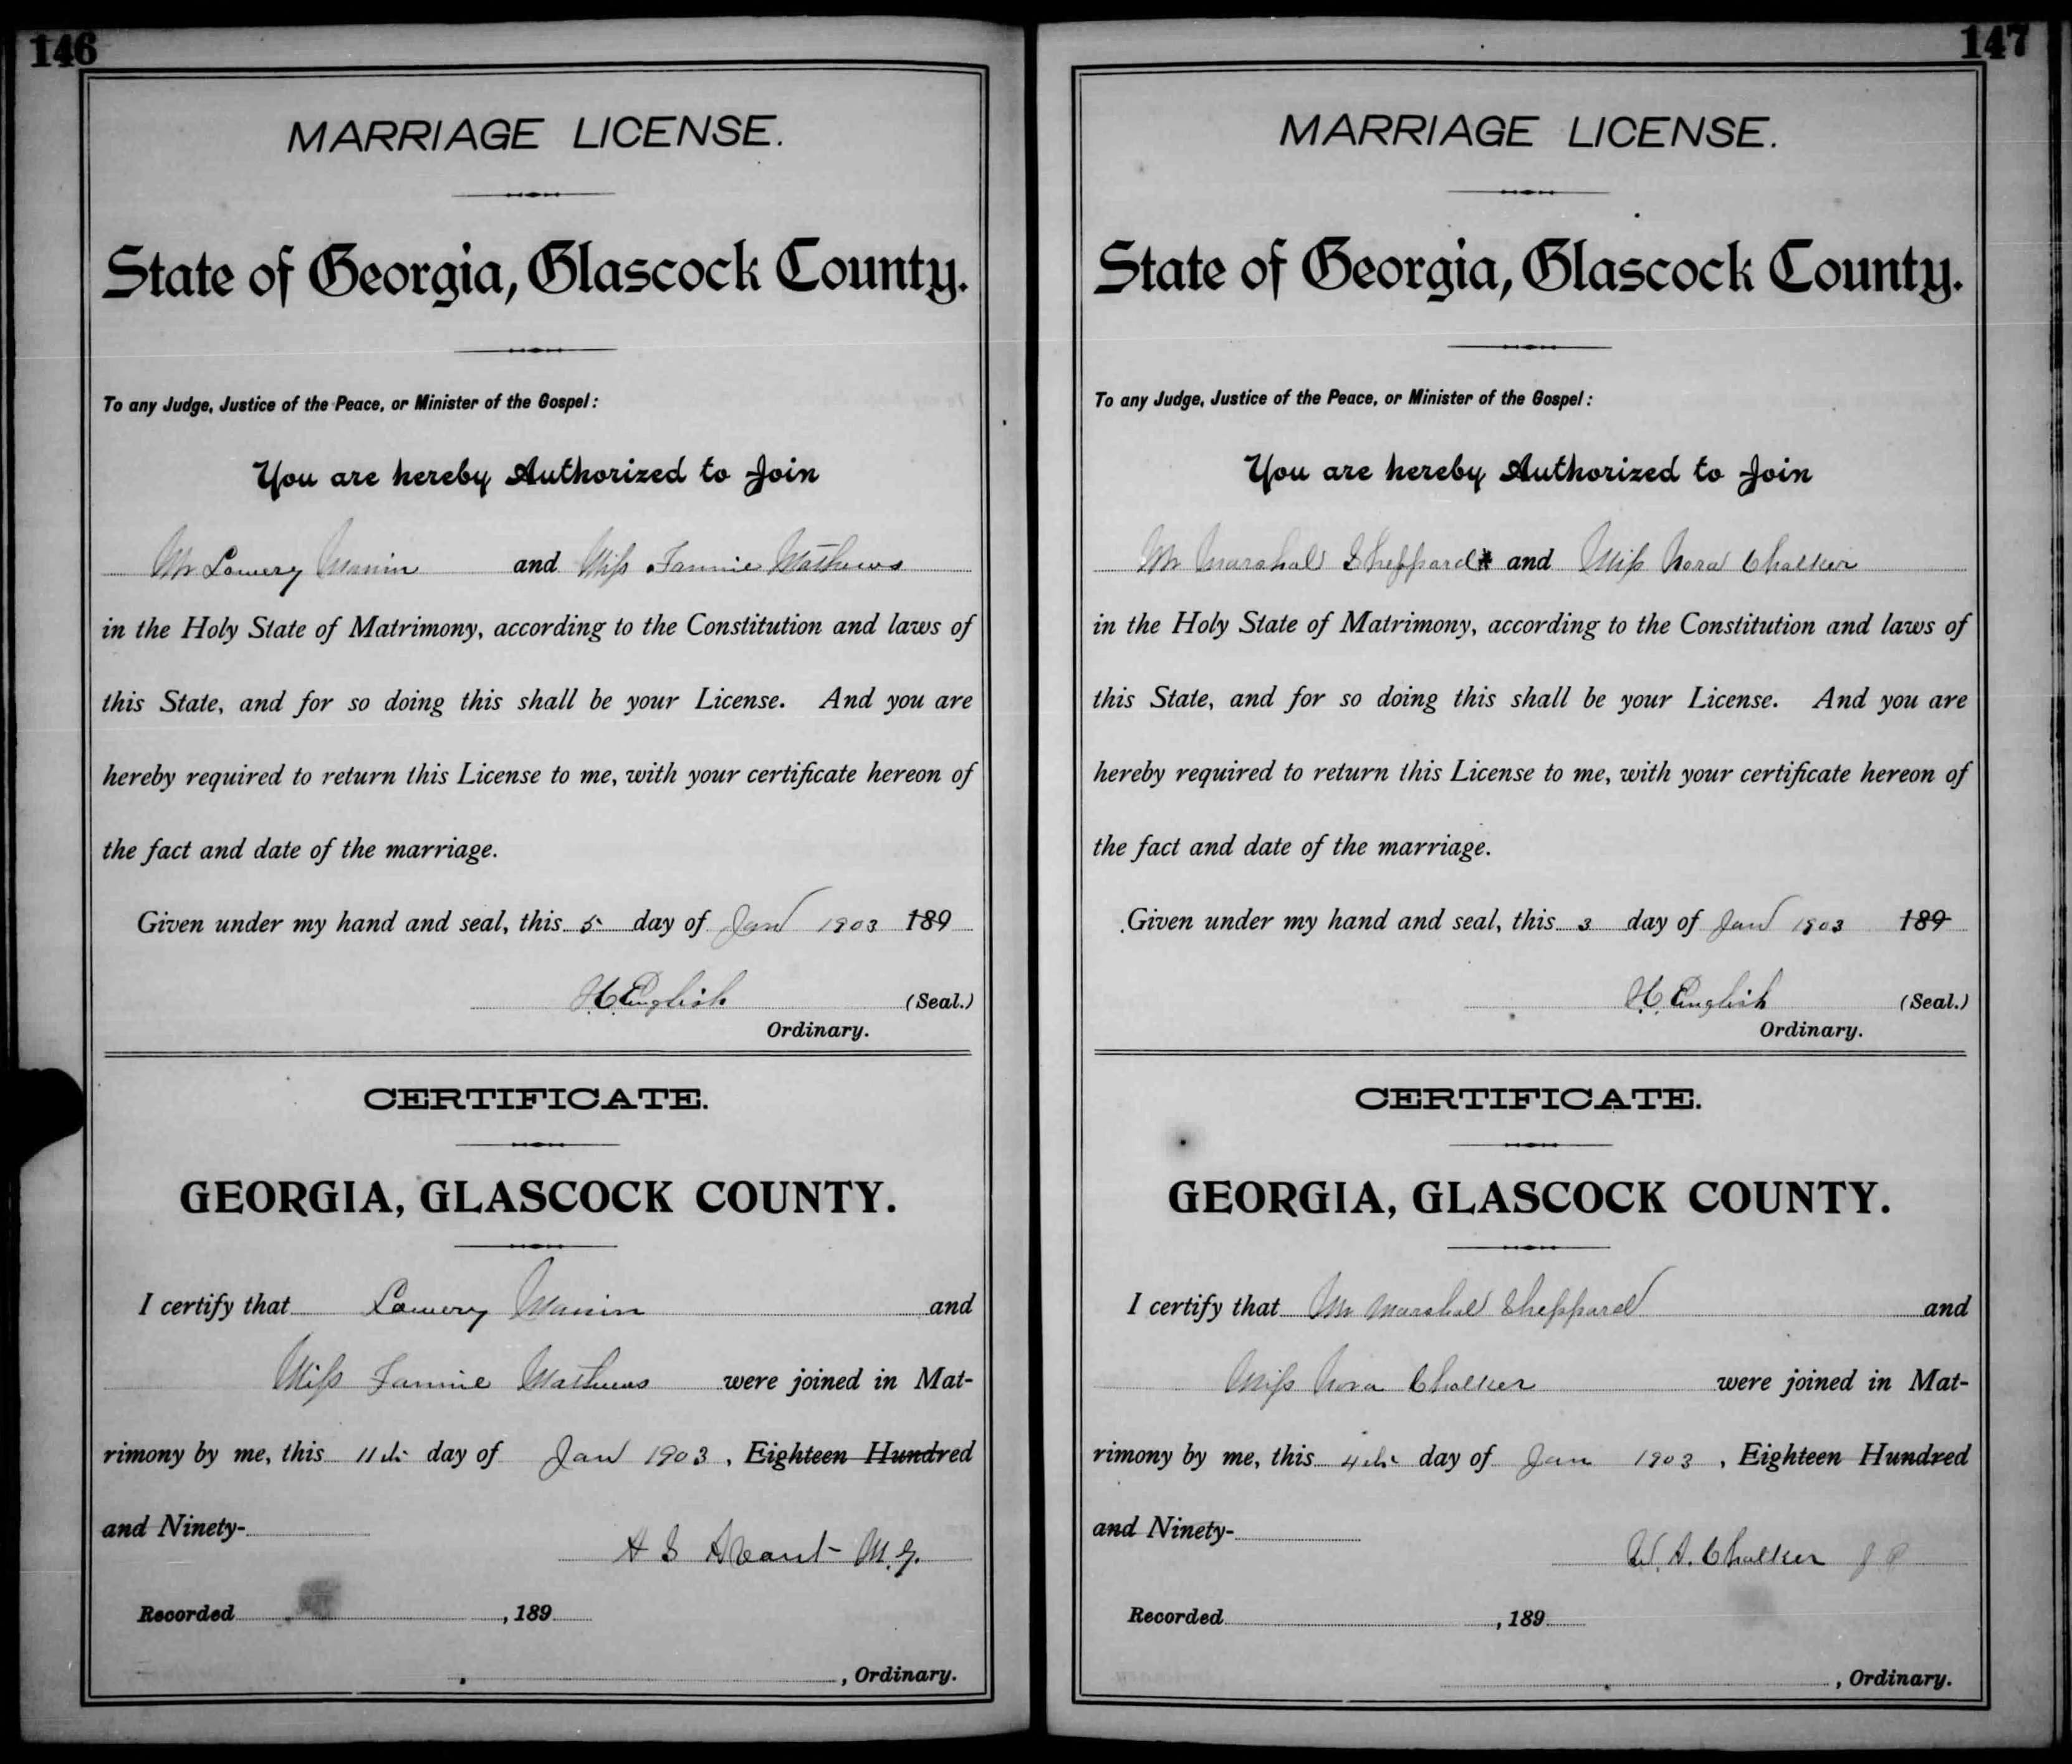 146
MARRIAGE LICENSE.
State of Georgia, Glascock County.
To any Judge, Justice of the Peace, or Minister of the Gospel:
You are hereby Authorized to Join
Mr Lowery and Miss Fannie Mathews
in the Holy State of Matrimony, according to the Constitution and laws of
this State, and for so doing this shall be your License. And you are
hereby required to return this License to me, with your certificate hereon of
the fact and date of the marriage.
Given under my hand and seal, this 5 day of Jan 1903 189
H. English (Seal.)
Ordinary.
CERTIFICATE.
GEORGIA, GLASCOCK COUNTY.
I certify that Lowery and
Miss Fannie Mathews were joined in Mat-
rimony by me, this 11th day of Jan 1903, Eighteen Hundred
and Ninety-
A S Avant M.G.
Recorded , 189
, Ordinary.
147
MARRIAGE LICENSE.
State of Georgia, Glascock County.
To any Judge, Justice of the Peace, or Minister of the Gospel:
You are hereby Authorized to Join
Mr Marshal Sheppard and Miss Nora Chalker
in the Holy State of Matrimony, according to the Constitution and laws of
this State, and for so doing this shall be your License. And you are
hereby required to return this License to me, with your certificate hereon of
the fact and date of the marriage.
Given under my hand and seal, this 3 day of Jan 1903 189
H. English (Seal.)
Ordinary.
CERTIFICATE.
GEORGIA, GLASCOCK COUNTY.
I certify that Mr Marshal Sheppard and
Miss Nora Chalker were joined in Mat-
rimony by me, this 4th day of Jan 1903, Eighteen Hundred
and Ninety-
W. A. Chalker J P
Recorded , 189
, Ordinary.